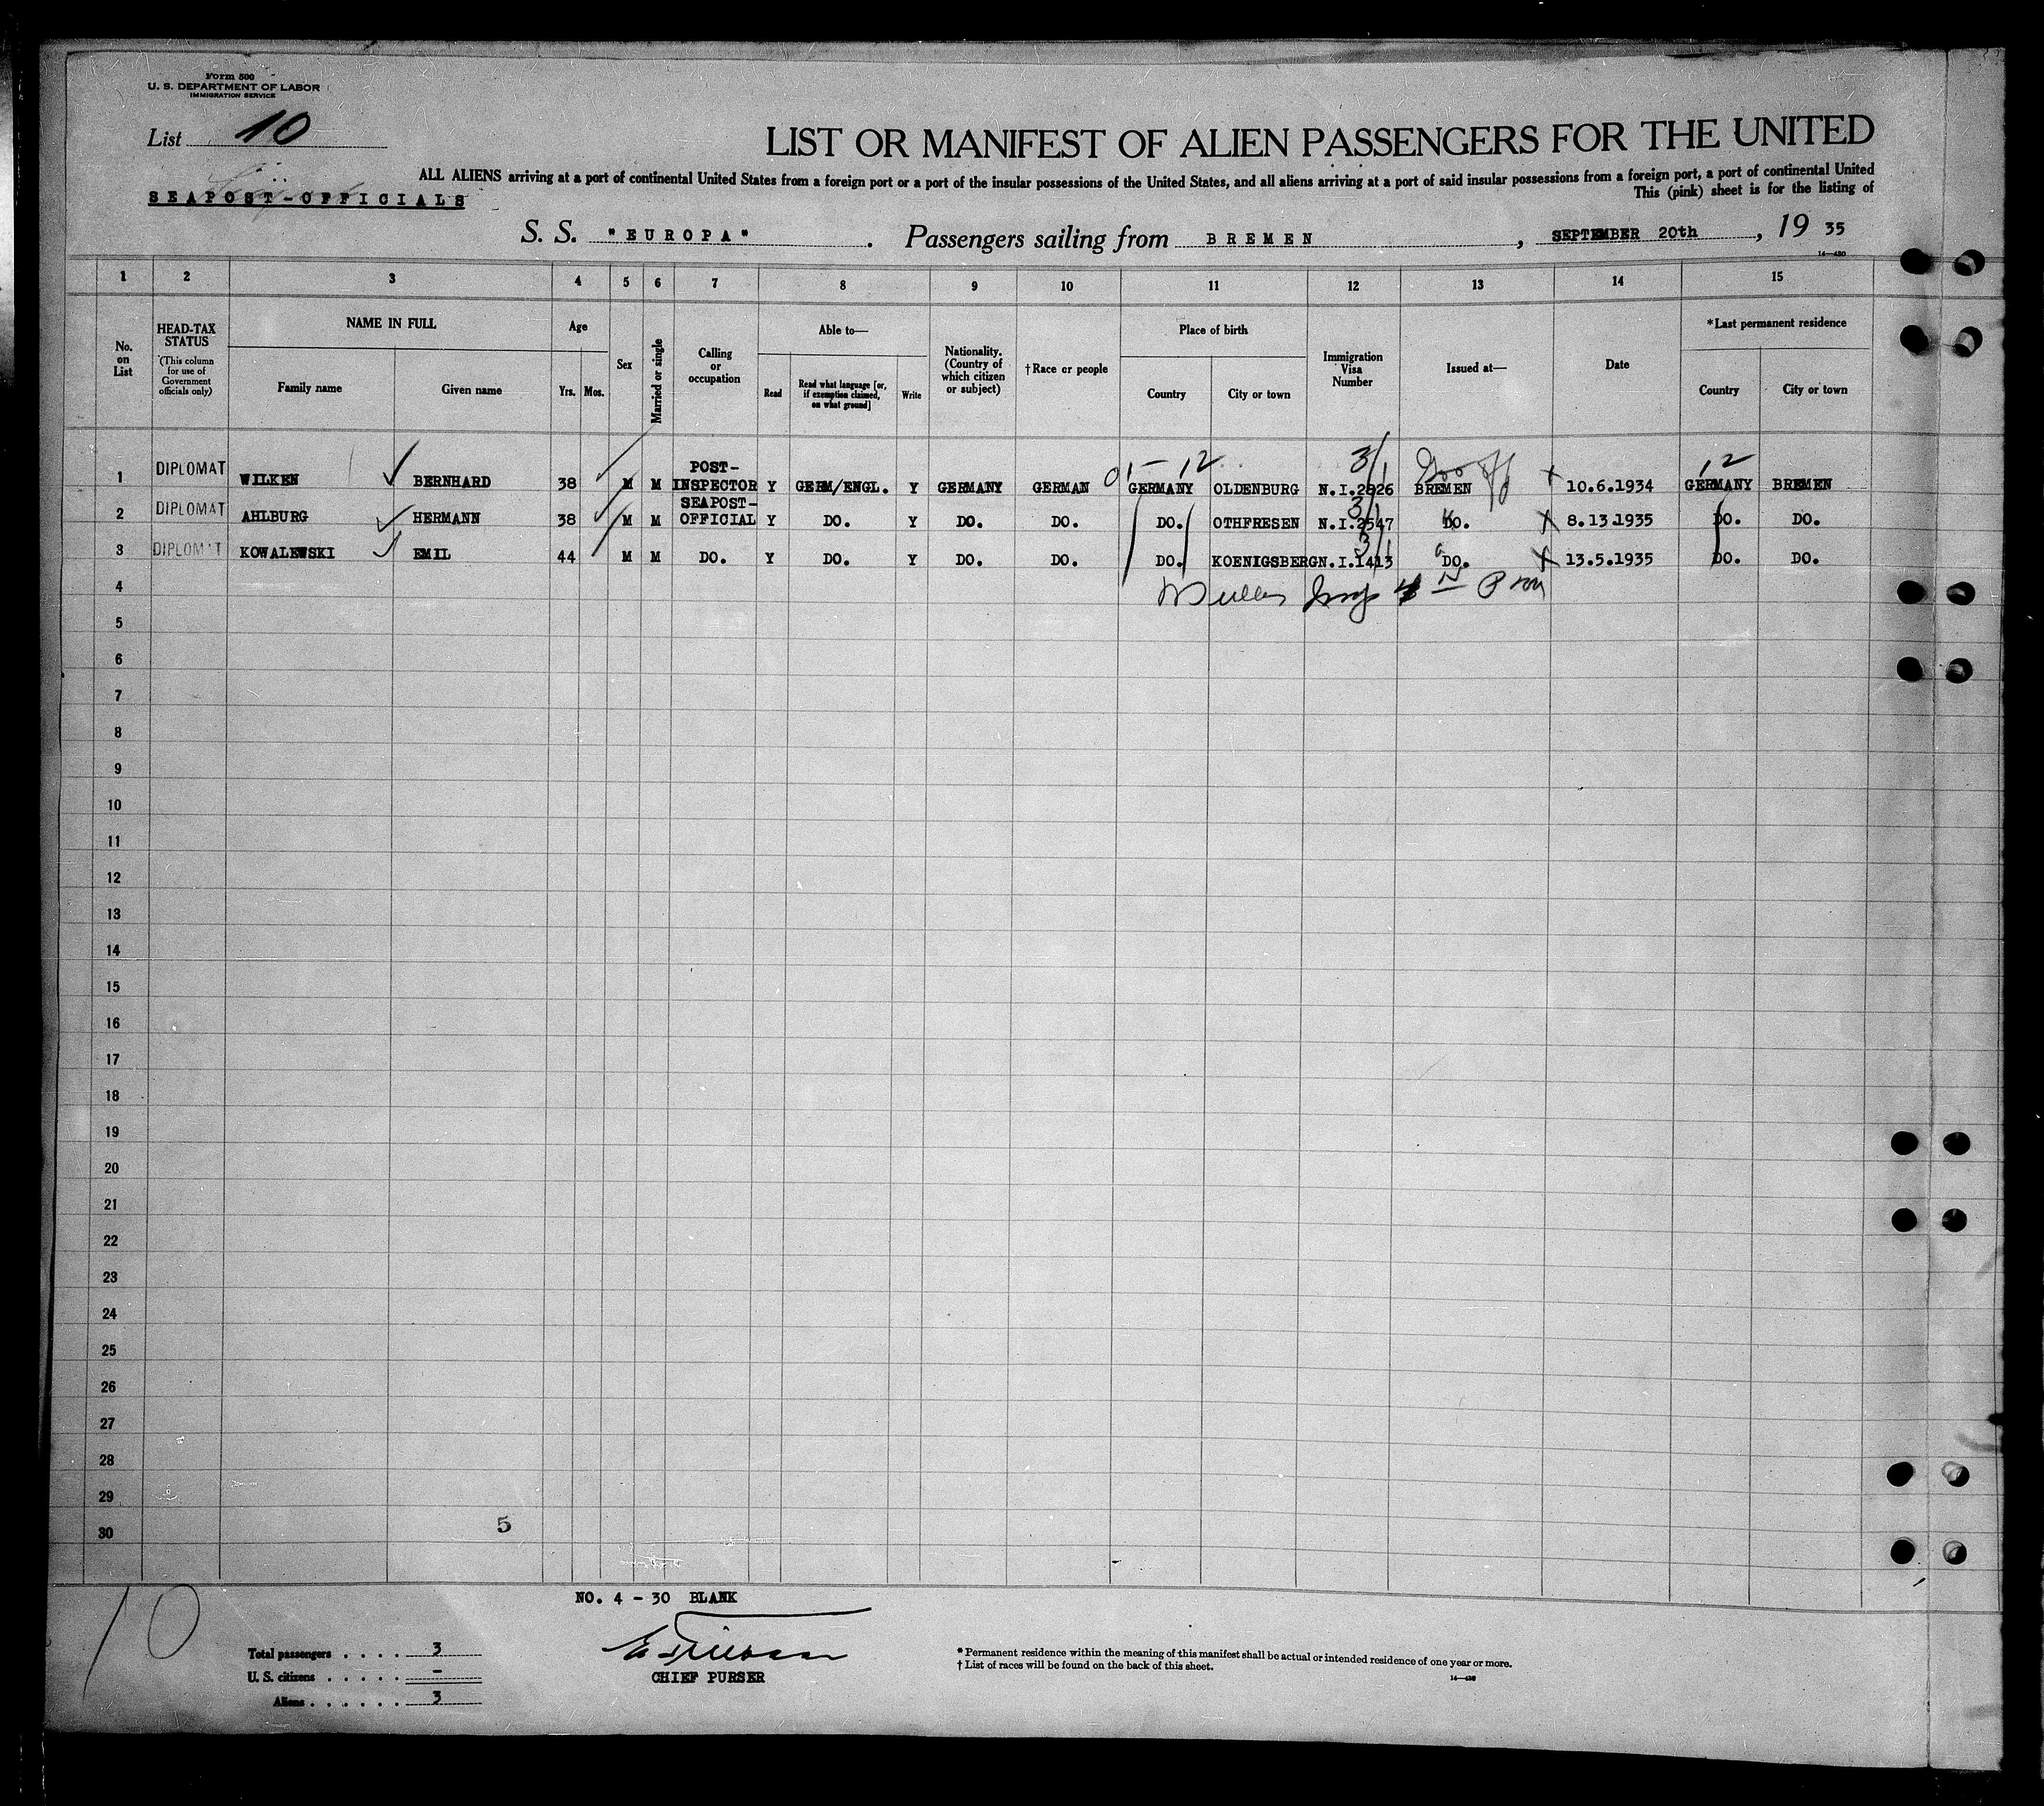 Form 500
U. S. DEPARTMENT OF LABOR
IMMIGRATION SERVICE
List 10
LIST OR MANIFEST OF ALIEN PASSENGERS FOR THE UNITED
ALL ALIENS arriving at a port of continental United States from a foreign port or a port of the insular possessions of the United States, and all aliens arriving at a port of said insular possessions from a foreign port, a port of continental United
SEAPOST-OFFICIALS
This (pink) sheet is for the listing of
S. S. "EUROPA" . Passengers sailing from BREMEN , SEPTEMBER 20th , 19 35
14—430
1 2 3 4 5 6 7 8 9 10 11 12 13 14 15
No. on List
HEAD-TAX STATUS
(This column for use of Government officials only)
NAME IN FULL
Family name Given name
Age
Yrs. Mos.
Sex
Married or single
Calling or occupation
Able to—
Read
Read what language [or, if exemption claimed, on what ground]
Write
Nationality. (Country of which citizen or subject)
†Race or people
Place of birth
Country City or town
Immigration Visa Number
Issued at—
Date
*Last permanent residence
Country City or town
12 3/1 12
1 DIPLOMAT WILKEN BERNHARD 38 M M POST-INSPECTOR Y GERM/ENGL. Y GERMANY GERMAN GERMANY OLDENBURG N.I.2826 BREMEN 10.6.1934 GERMANY BREMEN
3/1
2 DIPLOMAT AHLBURG HERMANN 38 M M SEAPOST-OFFICIAL Y DO. Y DO. DO. DO. OTHFRESEN N.I.2547 DO. 8.13.1935 DO. DO.
3/1
3 DIPLOMAT KOWALEWSKI EMIL 44 M M DO. Y DO. Y DO. DO. DO. KOENIGSBERG N.I.1413 DO. 13.5.1935 DO. DO.
4
5
6
7
8
9
10
11
12
13
14
15
16
17
18
19
20
21
22
23
24
25
26
27
28
29
30
5
NO. 4 - 30 BLANK
10
Total passengers . . . . 3
U. S. citizens . . . . . -
Aliens . . . . . . 3
CHIEF PURSER
* Permanent residence within the meaning of this manifest shall be actual or intended residence of one year or more.
† List of races will be found on the back of this sheet.
14—430